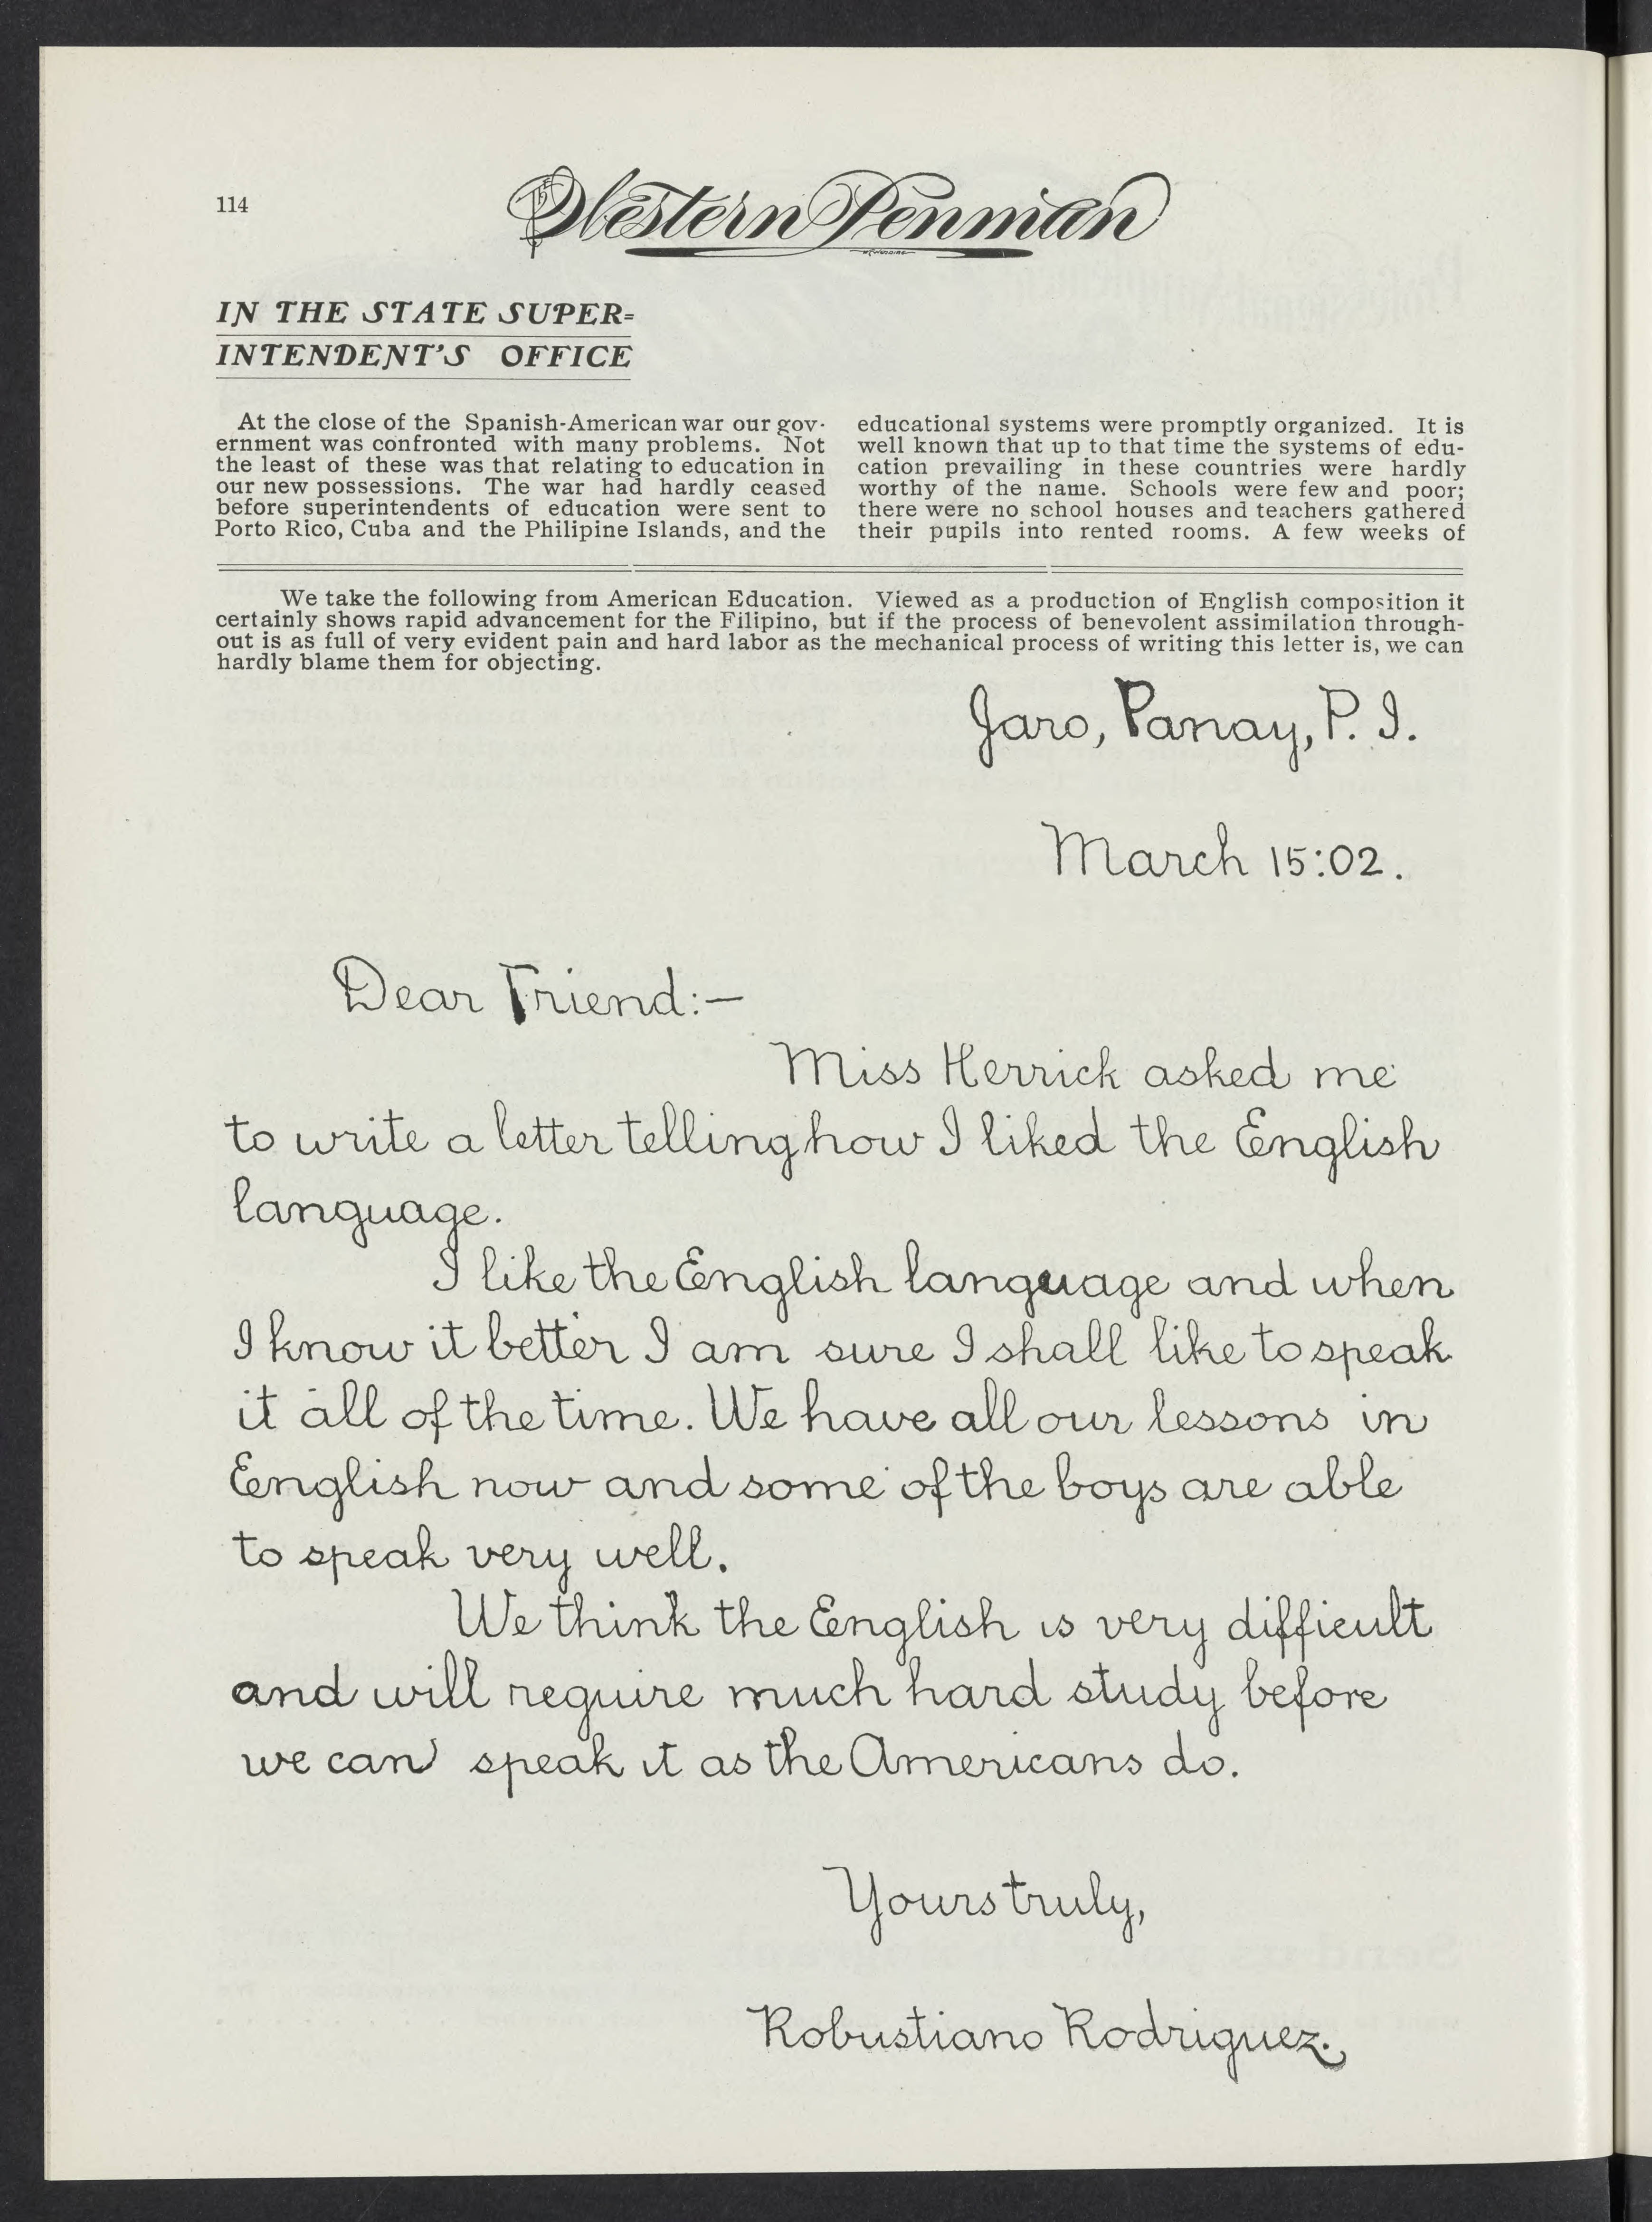 114
Western Penman
IN THE STATE SUPER-
INTENDENT'S OFFICE
At the close of the Spanish-American war our gov-
ernment was confronted with many problems. Not
the least of these was that relating to education in
our new possessions. The war had hardly ceased
before superintendents of education were sent to
Porto Rico, Cuba and the Philipine Islands, and the
educational systems were promptly organized. It is
well known that up to that time the systems of edu-
cation prevailing in these countries were hardly
worthy of the name. Schools were few and poor;
there were no school houses and teachers gathered
their pupils into rented rooms. A few weeks of
We take the following from American Education. Viewed as a production of English composition it
certainly shows rapid advancement for the Filipino, but if the process of benevolent assimilation through-
out is as full of very evident pain and hard labor as the mechanical process of writing this letter is, we can
hardly blame them for objecting.
Jaro, Panay, P. I.
March 15:02.
Dear Friend:—
Miss Herrick asked me
to write a letter telling how I liked the English
language.
I like the English language and when
I know it better I am sure I shall like to speak
it all of the time. We have all our lessons in
English now and some of the boys are able
to speak very well.
We think the English is very difficult
and will require much hard study before
we can speak it as the Americans do.
Yours truly,
Robustiano Rodriguez.